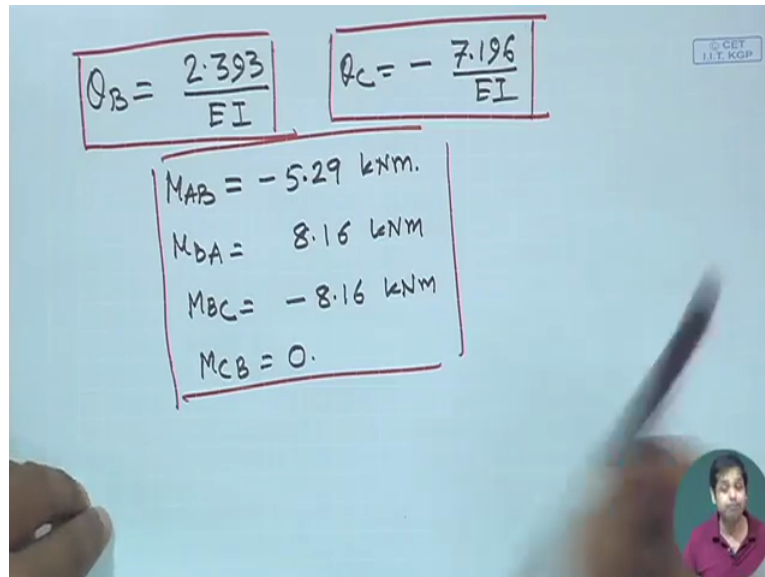 θB = 2.393 / EI
θC = - 7.196 / EI
© CET
I.I.T. KGP
MAB = - 5.29 kNm.
MBA = 8.16 kNm
MBC = - 8.16 kNm
MCB = 0.